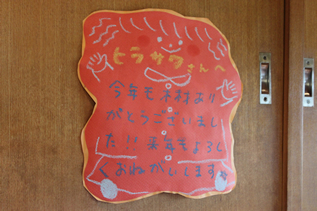 ヒラサワさんへ
今年も木材あり
がとうございまし
た!!来年もよろし
くおねがいします